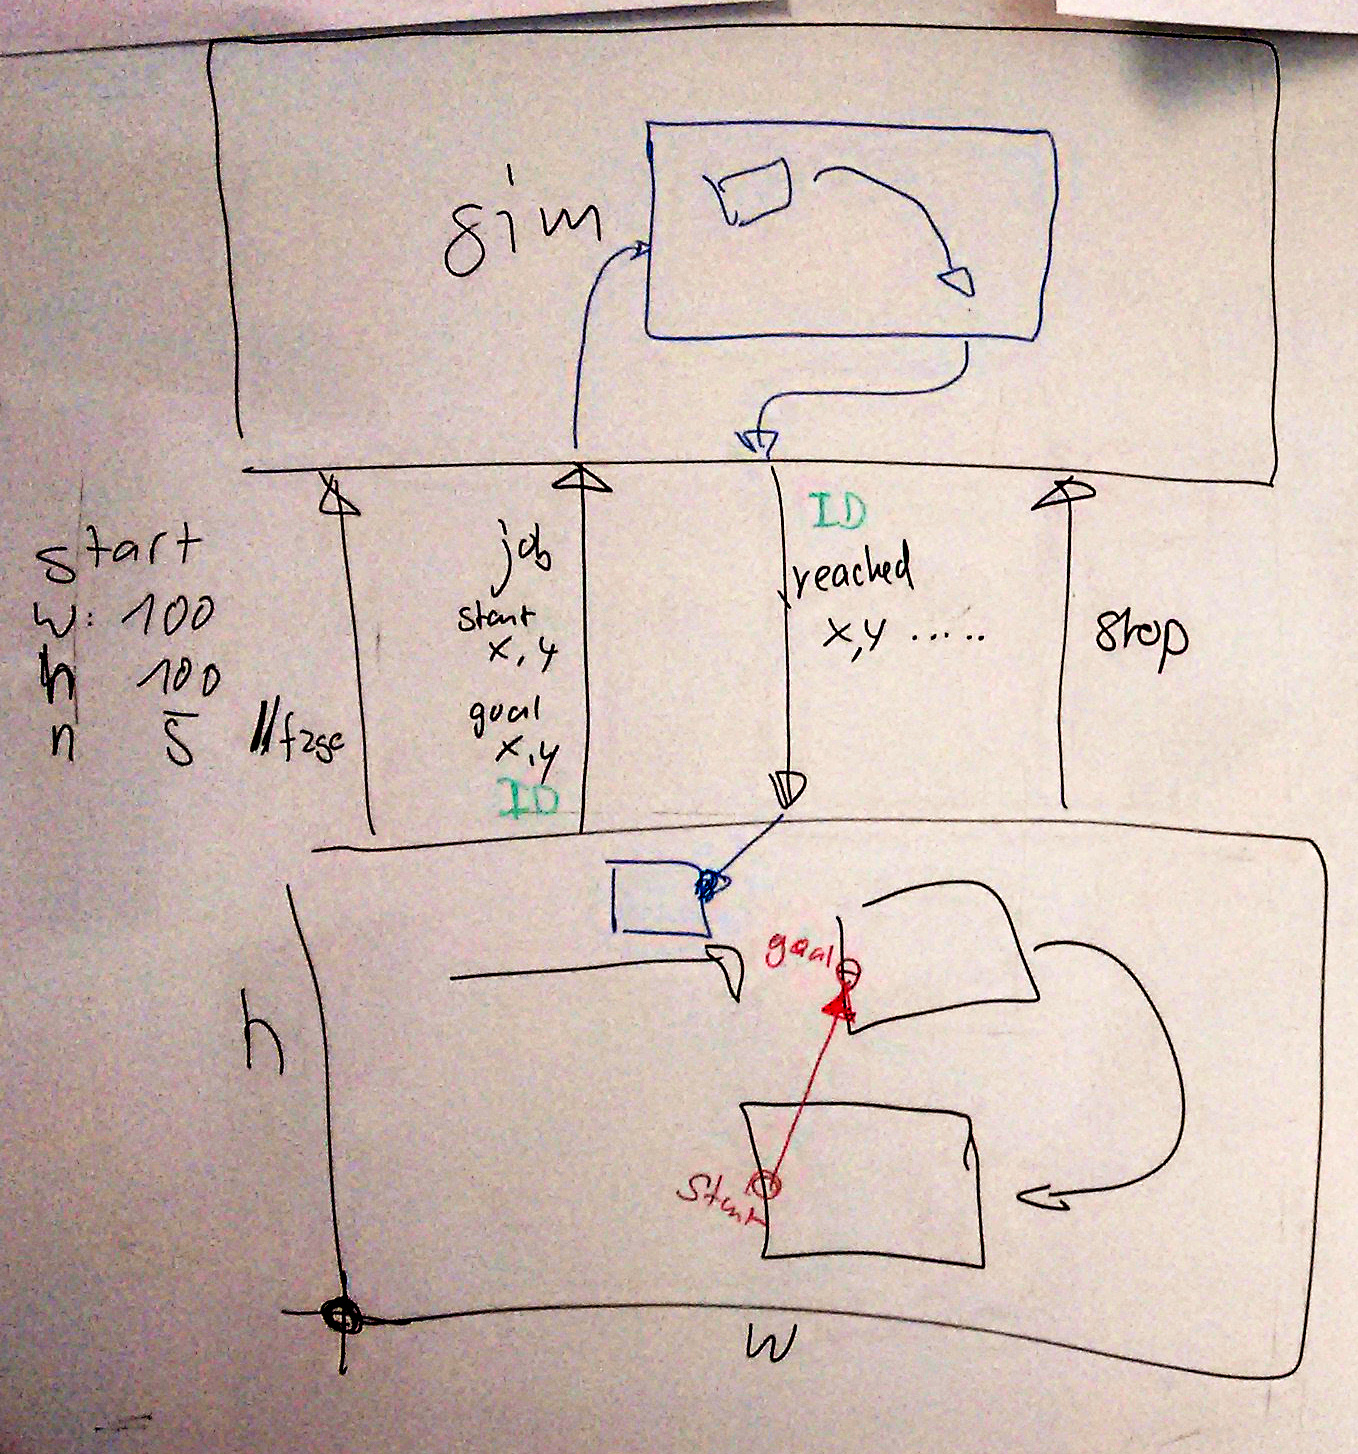 sim
start
w: 100
h 100
n 5
job
start
x, y
goal
x, y
ID
ID
reached
x, y .....
stop
h
goal
Start
w